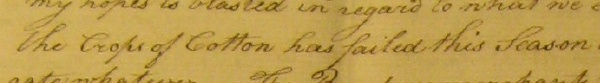 my hopes is blasted in regard to what we
the Crops of Cotton has failed this Season
whatever